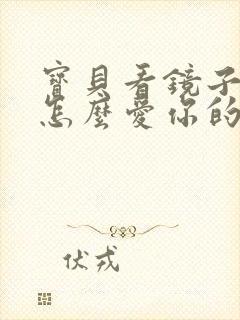 寶貝看鏡子
怎麼愛你的
伏戎